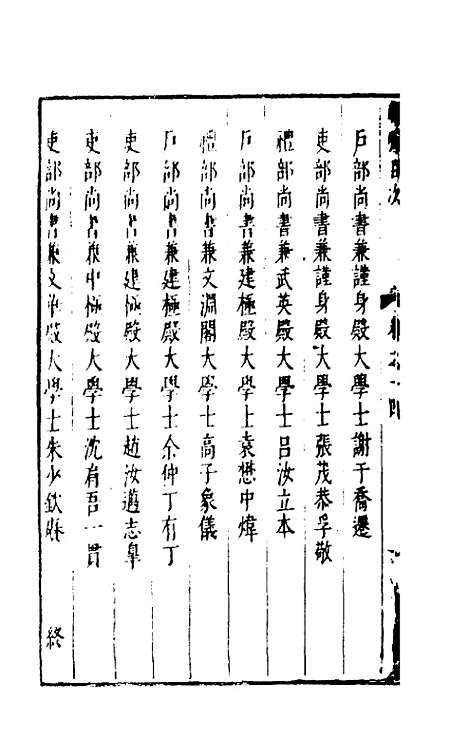 戶部尚書兼謹身殿大學士謝于喬遷
吏部尚書兼謹身殿大學士張茂恭孚敬
禮部尚書兼武英殿大學士呂汝立本
戶部尚書兼建極殿大學士袁懋中煒
禮部尚書兼文淵閣大學士高子象儀
戶部尚書兼建極殿大學士余仲丁有丁
吏部尚書兼建極殿大學士趙汝邁志皐
吏部尚書兼中極殿大學士沈肩吾一貫
吏部尚書兼文華殿大學士朱少欽賡
終